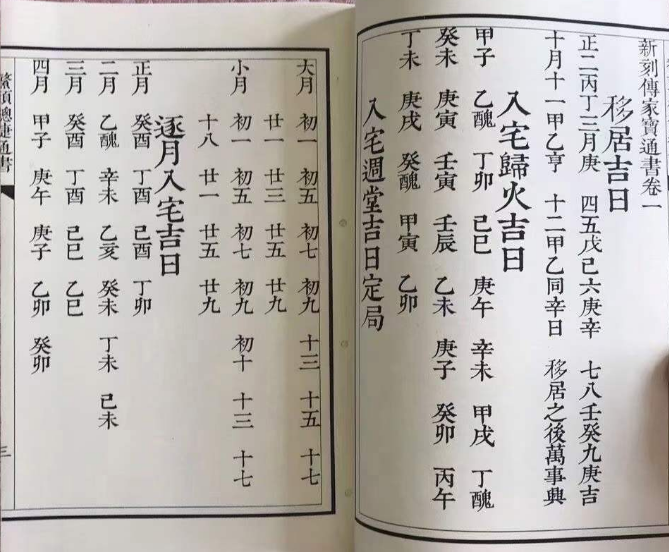 新刻傳家寶通書卷一
移居吉日
正二丙丁三月庚 四五戊己六庚辛 七八壬癸九庚吉
十月十一甲乙亨 十二甲乙同辛日 移居之後萬事興
入宅歸火吉日
甲子 乙醜 丁卯 己巳 庚午 辛未 甲戌 丁醜
癸未 庚寅 壬寅 壬辰 乙未 庚子 癸卯 丙午
丁未 庚戌 癸醜 甲寅 乙卯
入宅週堂吉日定局
大月 初一 初五 初七 初九 十三 十五 十七
廿一 廿三 廿五 廿九
小月 初一 初五 初七 初九 初十 十三 十七
十八 廿一 廿五 廿九
逐月入宅吉日
正月 癸酉 丁酉 己酉 丁卯
二月 乙醜 辛未 乙亥 癸未 丁未 己未
三月 癸酉 丁酉 己巳 乙巳
四月 甲子 庚午 庚子 乙卯 癸卯
鰲頭總捷通書
三